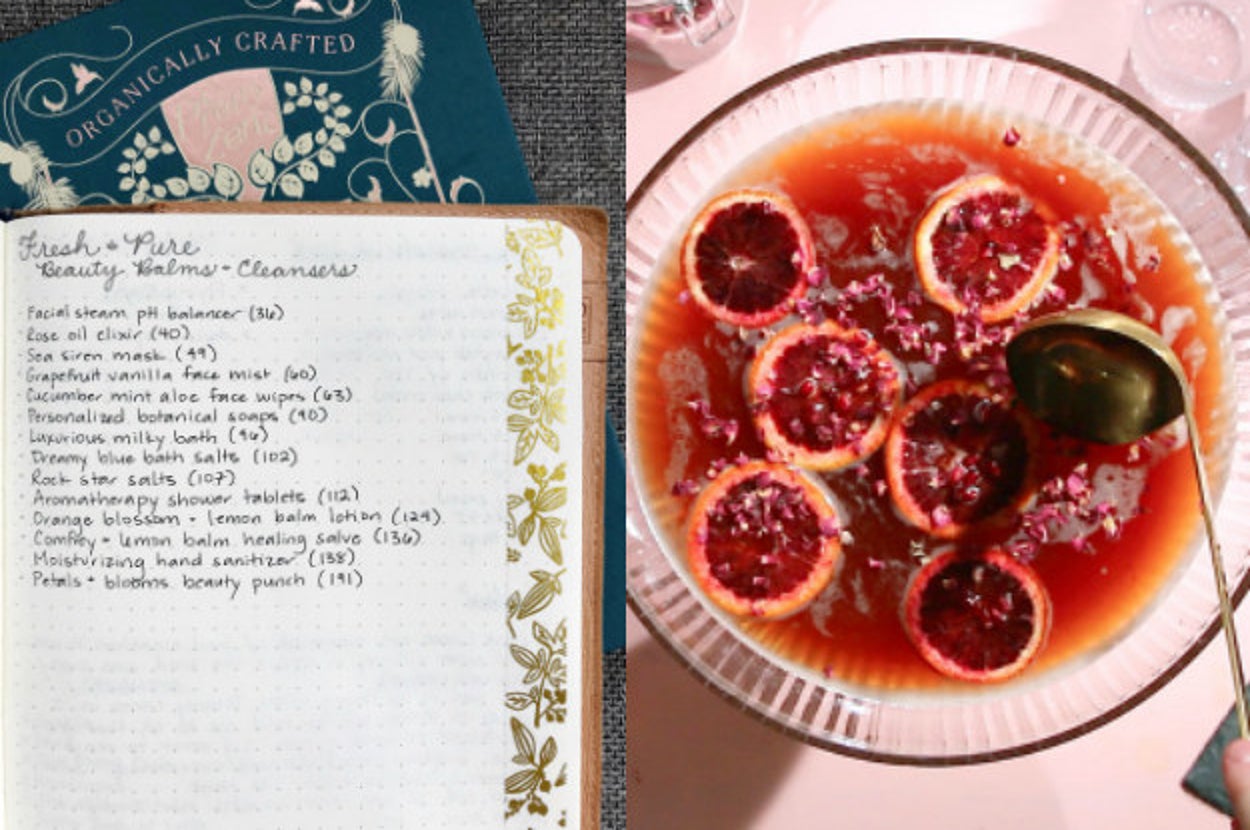 ORGANICALLY CRAFTED
Fresh + Pure
Beauty Balms + Cleansers
· Facial steam pH balancer (36)
· Rose oil elixir (40)
· Sea siren mask (49)
· Grapefruit vanilla face mist (60)
· Cucumber mint aloe face wipes (63)
· Personalized botanical soaps (90)
· Luxurious milky bath (96)
· Dreamy blue bath salts (102)
· Rock star salts (107)
· Aromatherapy shower tablets (112)
· Orange blossom + lemon balm lotion (124)
· Comfrey + lemon balm healing salve (136)
· Moisturizing hand sanitizer (138)
· Petals + blooms beauty punch (191)